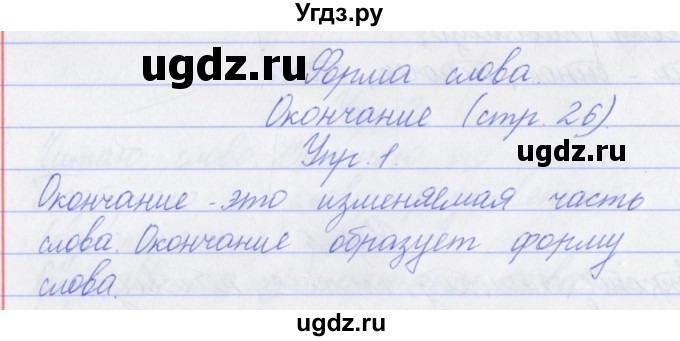 Угдз.ру
ugdz.ru
Форма слова.
Окончание (стр. 26).
ugdz.ru
Упр. 1.
Окончание - это изменяемая часть
слова. Окончание образует форму
слова.
ugdz.ru
ugdz.ru